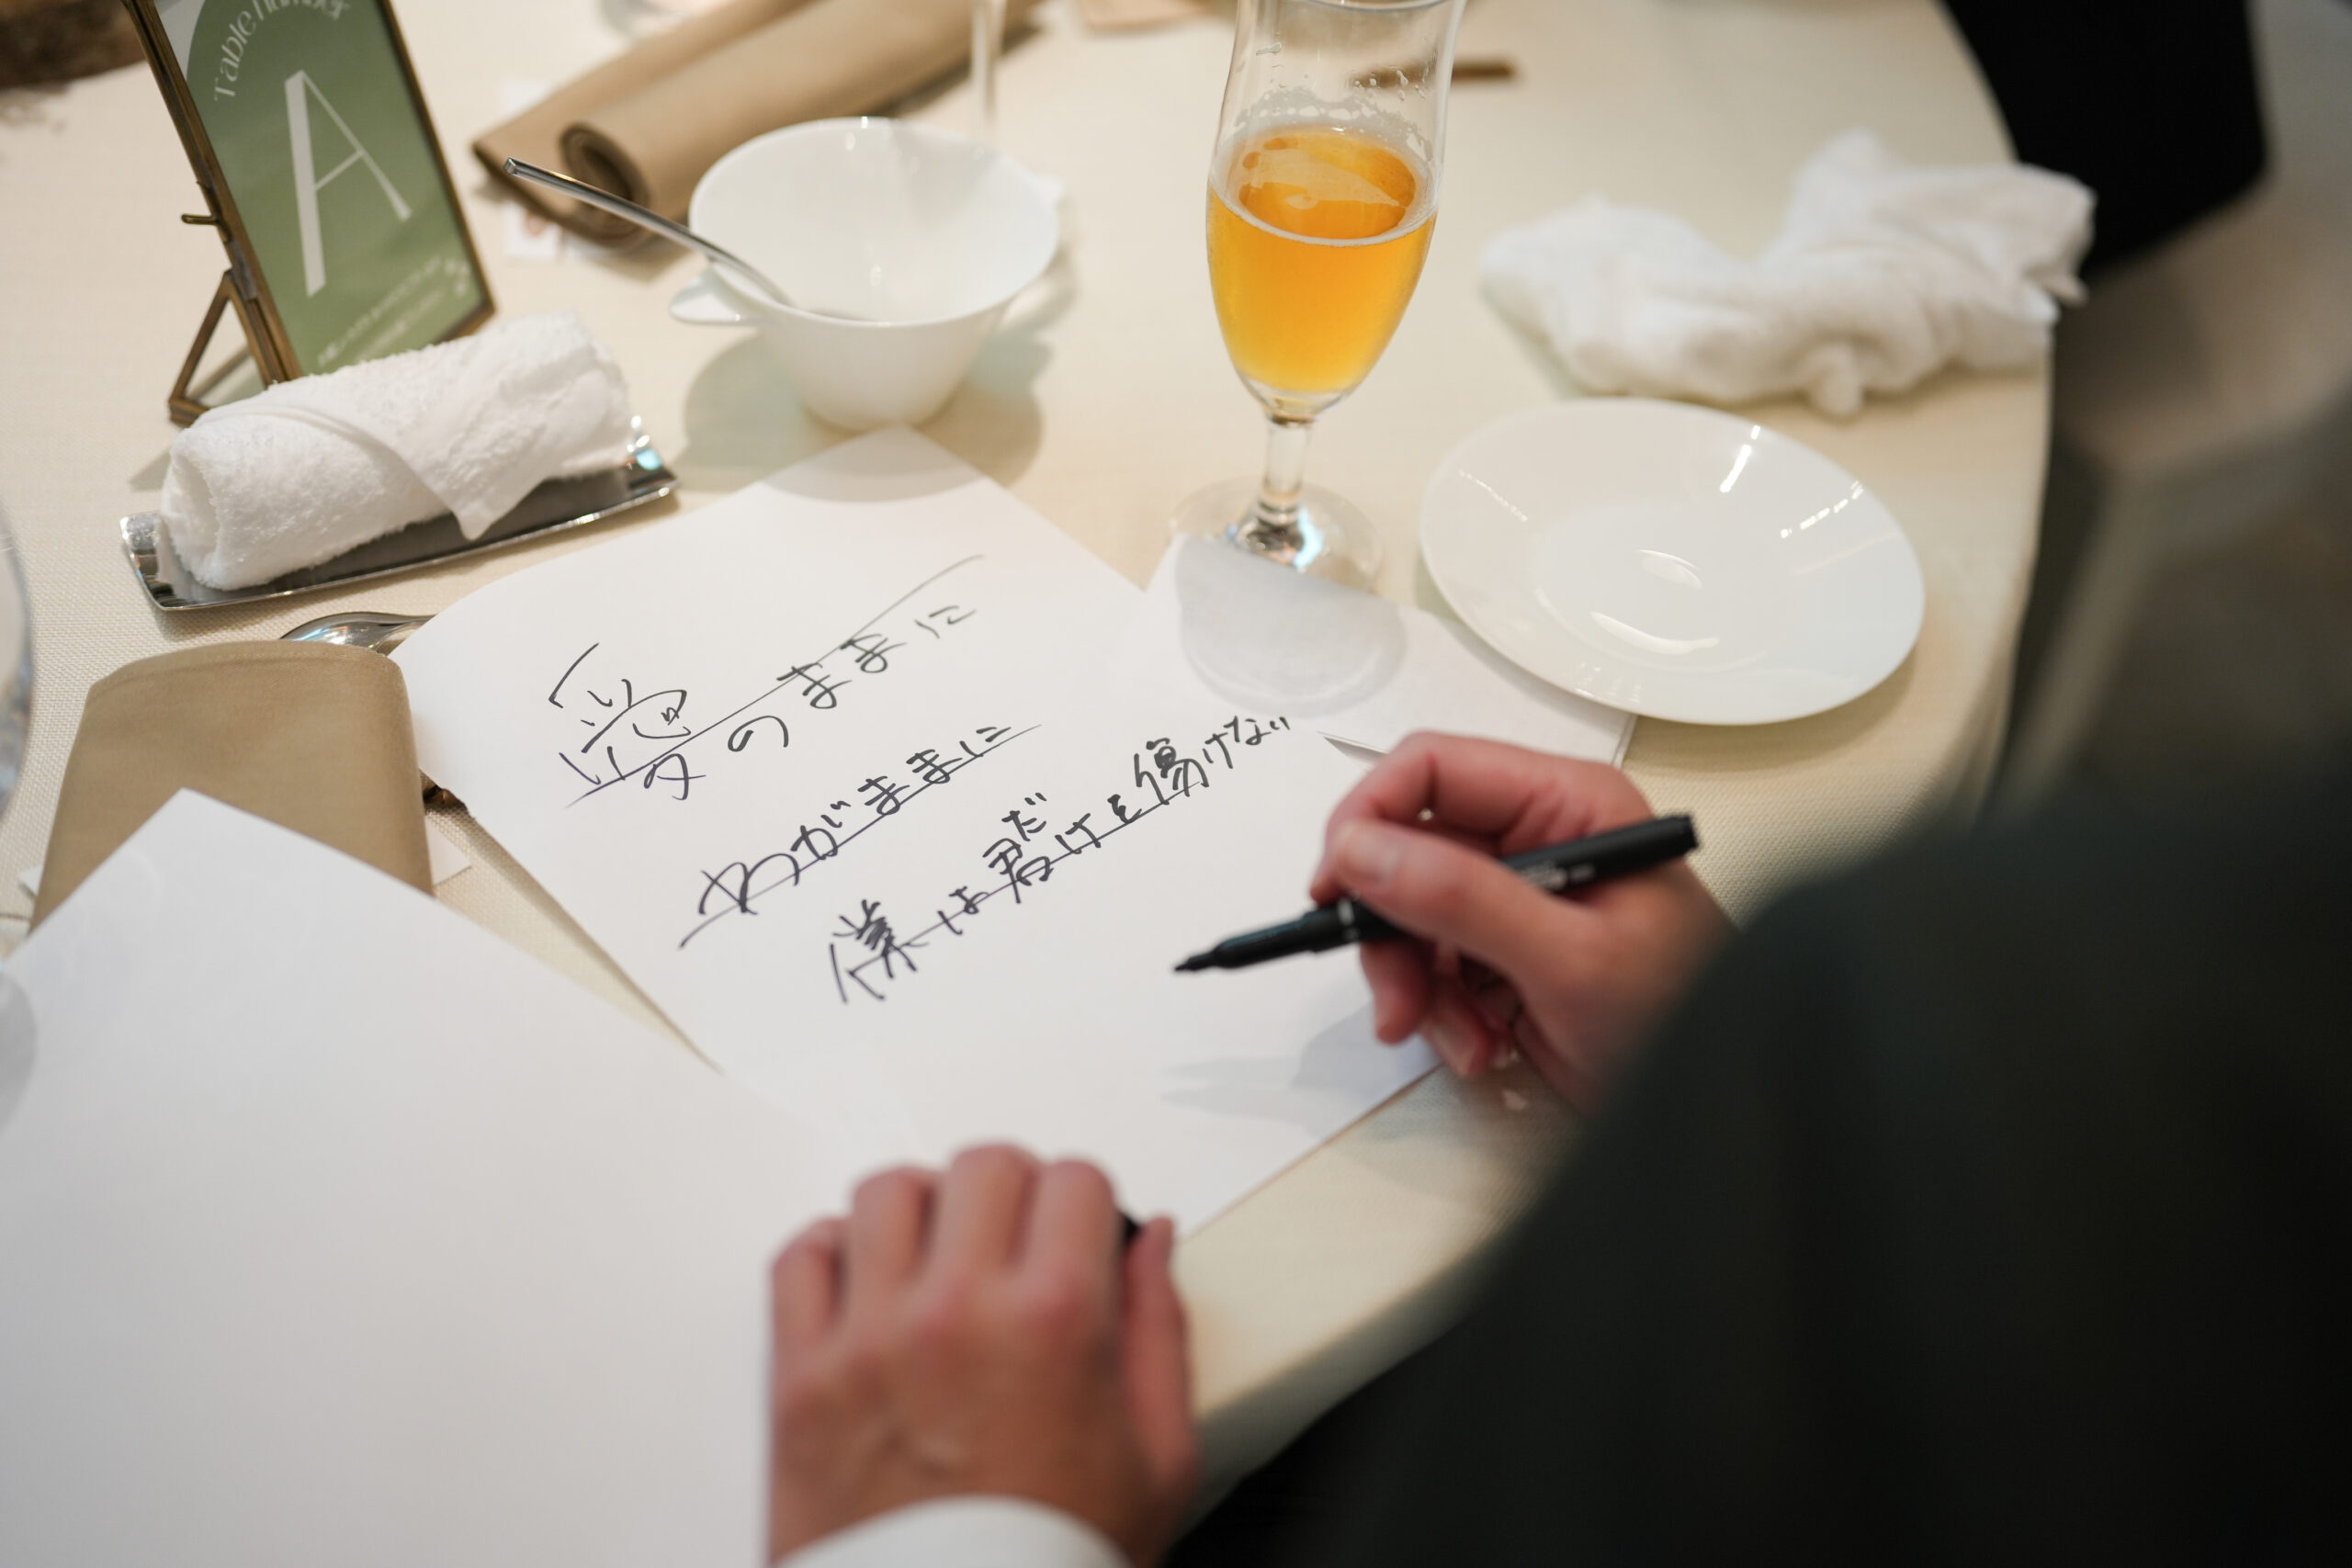 Table number
A
愛のままに
わがままに
僕は君だけを傷けない